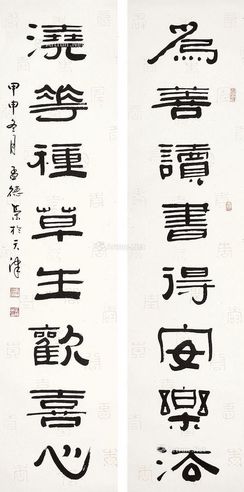 為善讀書得安樂法
澆花種草生歡喜心
甲申冬月
德
於天津